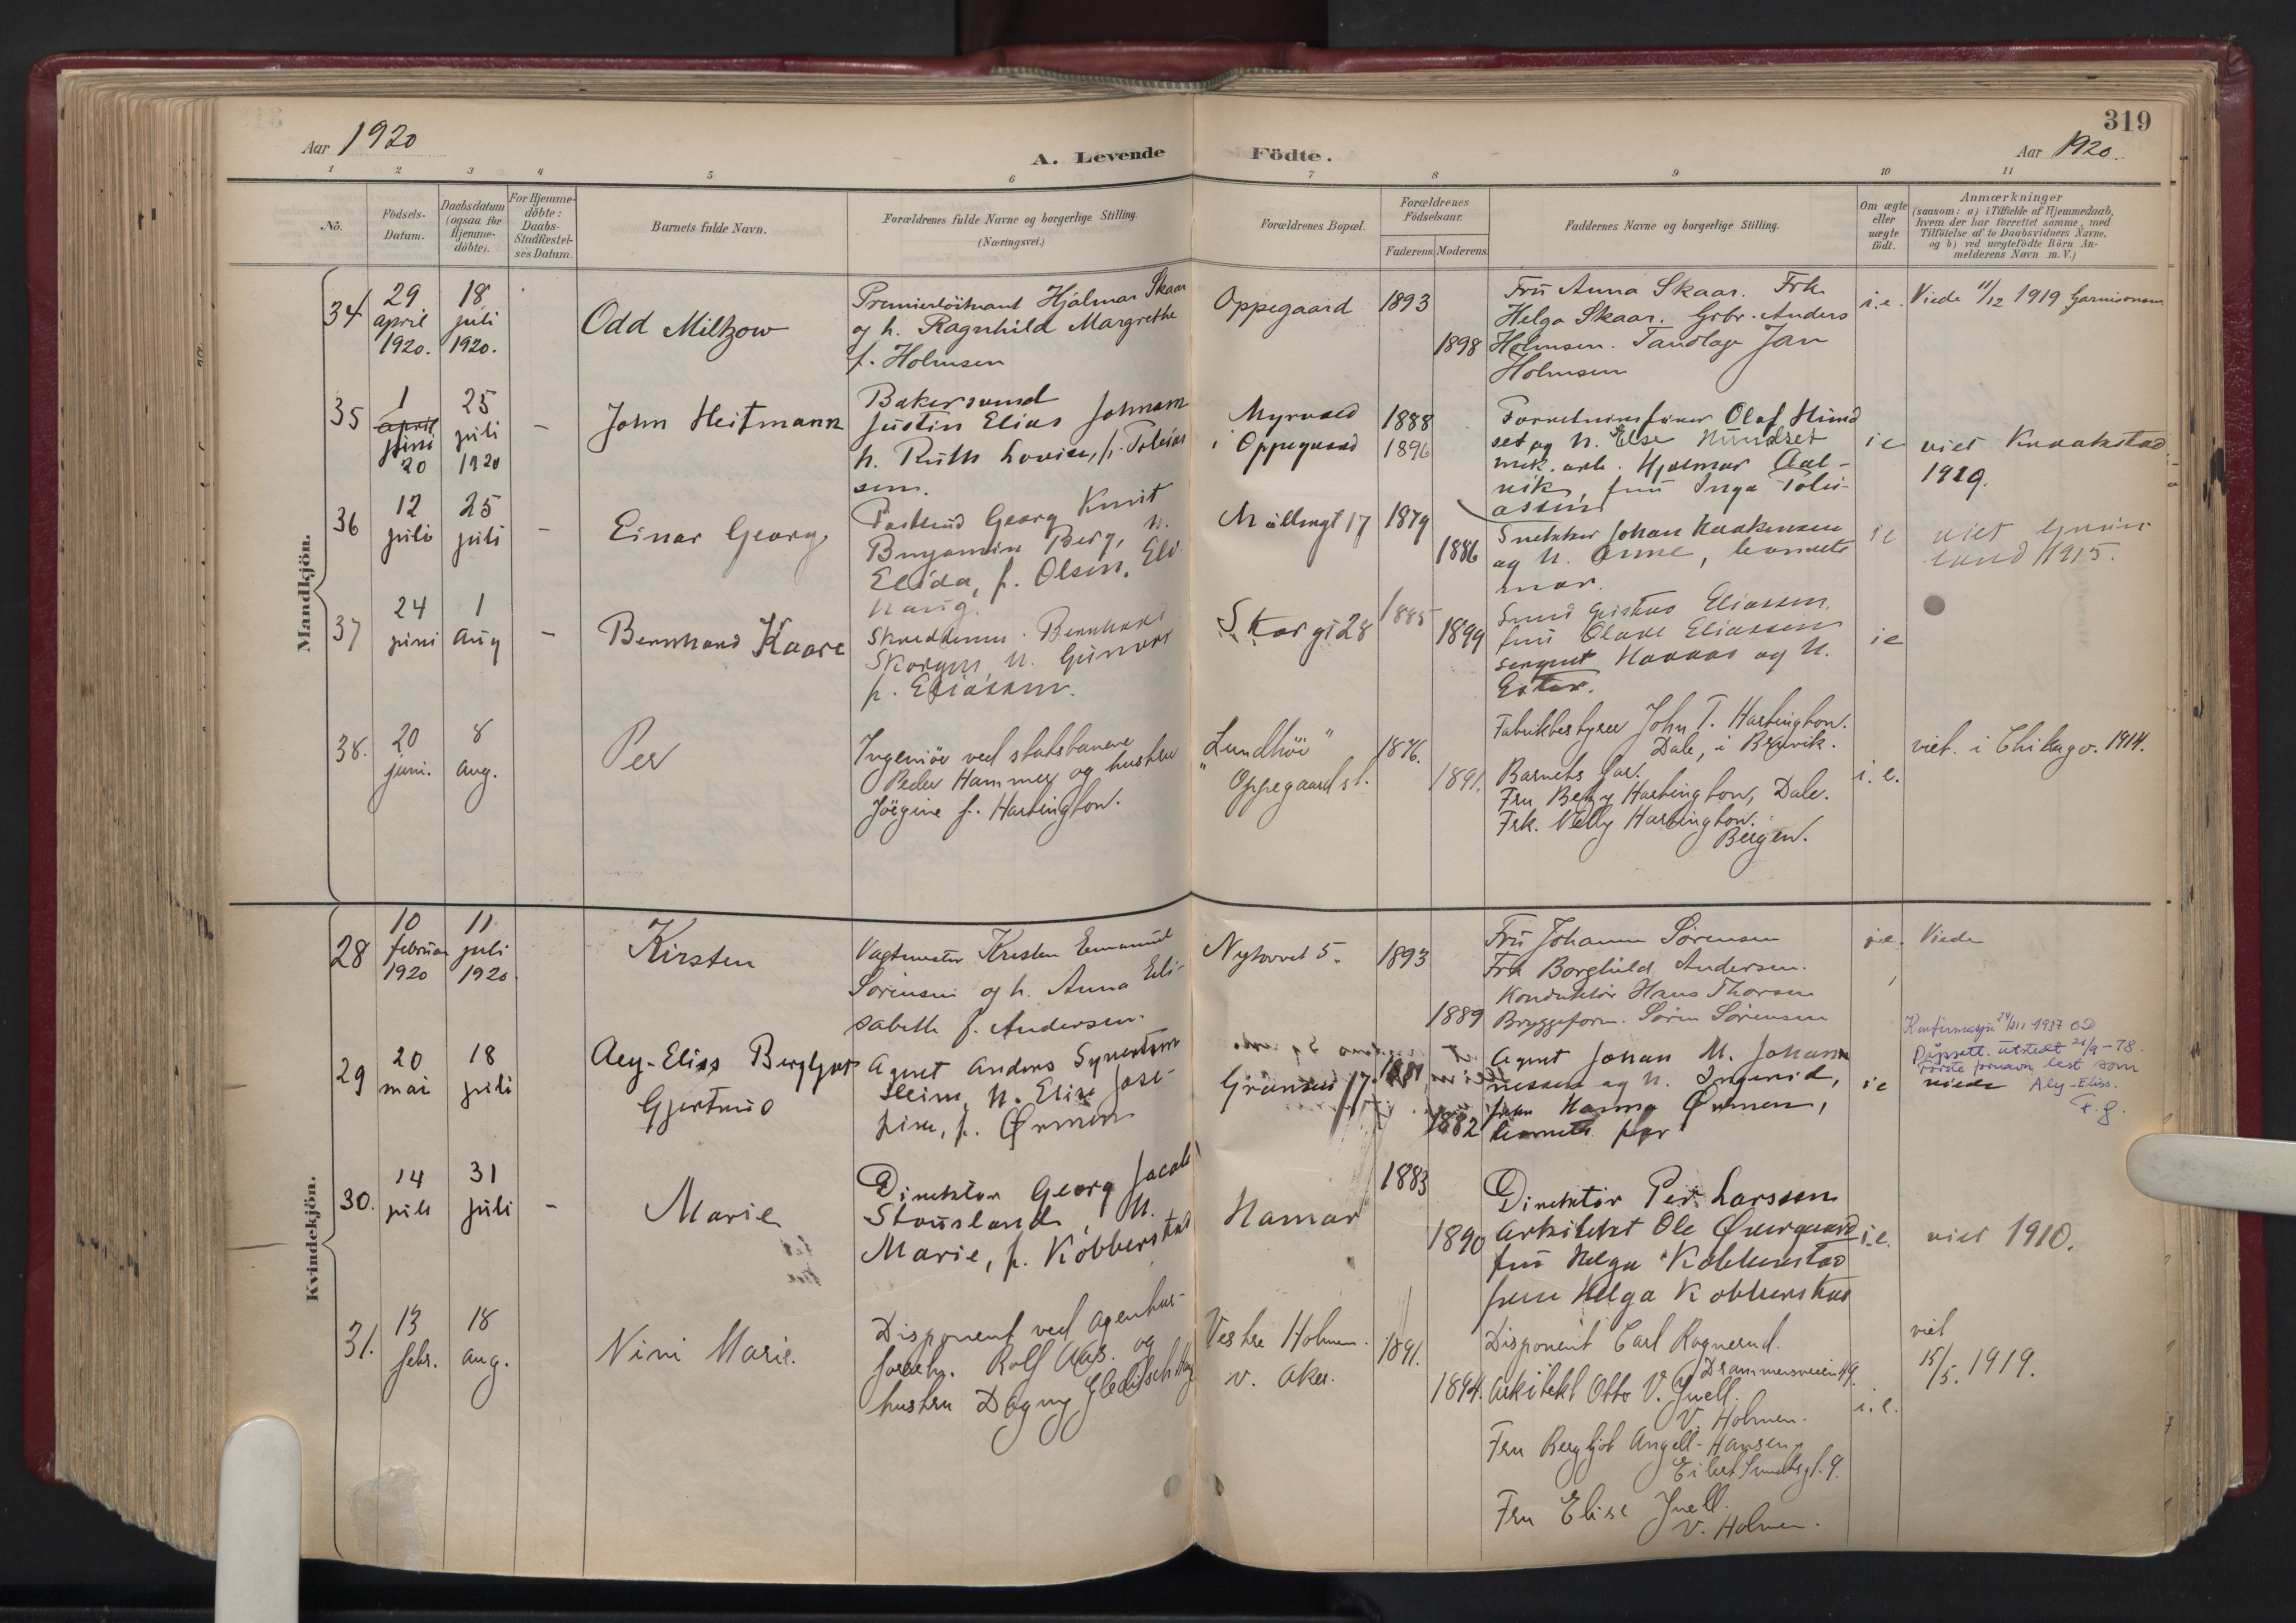 319
Aar 1920
A. Levende Födte.
Aar 1920.
1 2 3 4 5 6 7 8 9 10 11
No.
Födsels-
Datum.
Daabsdatum
(ogsaa for
Hjemme-
döbte).
For Hjemme-
döbte:
Daabs-
Stadfæstel-
ses Datum.
Barnets fulde Navn.
Forældrenes fulde Navne og borgerlige Stilling.
(Næringsvei.)
Forældrenes Bopæl.
Forældrenes
Födselsaar.
Faderens. Moderens.
Faddernes Navne og borgerlige Stilling.
Om ægte
eller
uægte
födt.
Anmærkninger
(saasom: a) i Tilfælde af Hjemmedaab,
hvem der har forrettet samme, med
Tilföielse af to Daabsvidners Navne.
og b) ved uægtefödte Börn An-
melderens Navn m. V.)
Mandkjön.
34
29
april
1920.
18
juli
1920.
Odd Miltzow
Premierløitnant Hjalmar Skaar
og h. Ragnhild Margrethe
f. Holmsen
Oppegaard
1893
1898
Fru Anna Skaar. Frk.
Helga Skaar. Grbr. Anders
Holmsen. Tandlæge Jan
Holmsen
i.e.
Viede 11/12 1919 Garnisonsm.
35
1
april
juni
20
25
juli
1920
-
John Heitmann
Bakersvend
Justin Elias Johnsen
h. Ruth Lovise, f. Tobias
sen.
Myrvold
i Oppegaard
1888
1896
Forretningsfører Olaf Hund
set og h. Else Hundset
mek. arb. Hjalmar Aal-
vik, fru Inga Tobi-
assen
i e
viet Kraakstad
1919.
36
12
juli
25
juli
-
Einar Georg
Postbud Georg Knut
Benjamin Berg, h.
Elida, f. Olsen, Eli
haug.
Møllergt 17
1879
1886
Snekker Johan Haakensen
og h. Anne, barnets
mor.
i e
viet Grün
land 1915.
37
24
juni
1
aug
-
Bernhard Kaare
Skreddersv. Bernhard
Skorgen, h. Gunvor
f. Eliassen.
Skorgt 28
1885
1899
Smed Gustav Eliassen,
fru Olave Eliassen
sergent Haavas og h.
Ester.
i e
38.
20
juni.
8
aug.
Per
Ingeniör ved statsbanene
Peder Hammer og hustru
Jörgine f. Hartington.
"Lundhöi"
Oppegaard st.
1876.
1891.
Fabrikbestyrer John T. Hartington.
Dale, i Bruvik.
Barnets far.
Fru Betzy Hartington, Dale.
Frk. Nelly Hartington.
Bergen.
i. e.
viet. i Chikago. 1914.
Kvindekjön.
28
10
februar
1920
11
juli
1920.
Kirsten
Vagtmester Kristen Emanuel
Sörensen og h. Anna Eli-
sabeth f. Andersen.
Nytorvet 5.
1893
1889
Fru Johanne Sörensen
Frk Borghild Andersen.
Konduktör Hans Thorsen
Bryggeform. Sören Sörensen
i.e.
Viede
29
20
mai
18
juli
Aey-Eliss Bergljot
Gjertrud
Agent Anders Syvertsen
Heim, h. Elise Jose-
fine, f. Ørmen
Grønsen 17
1881
1882
Agent Johan M. Johan
nessen og h. Ingerid,
frøken Hanna Ørmen,
barnets far
i e
viede
Konfirmasjon 24/ 1937 OD
Dåpsatt. utstedt 21/9-78.
Første fornavn lest som
Aly-Eliss.
F.g.
30.
14
juli
31
juli
-
Marie
Direktør Georg Jacob
Stousland, h.
Marie, f. Kobberstad
Hamar
1883
1890
Direktør Per Larssen
Arkitekt Ole Øvergaard
fru Helga Kobberstad
frøken Helga Kobberstad
i.e.
viet 1910.
31.
13
febr.
18
aug.
Nini Marie.
Disponent ved agentur-
forretn. Rolf Aas. og
hustru Dagny Gleditsch
Vestre Holmen.
v. Aker.
1891.
1894.
Disponent Carl Ragnerud.
Drammensveien 49.
Arkitekt Otto V. Juell.
V. Holmen.
Fru Bergljot Angell-Hansen,
Eilert Sundtsgt. 9.
Fru Elise Juell.
V. Holmen.
i. e.
viet
15/5. 1919.